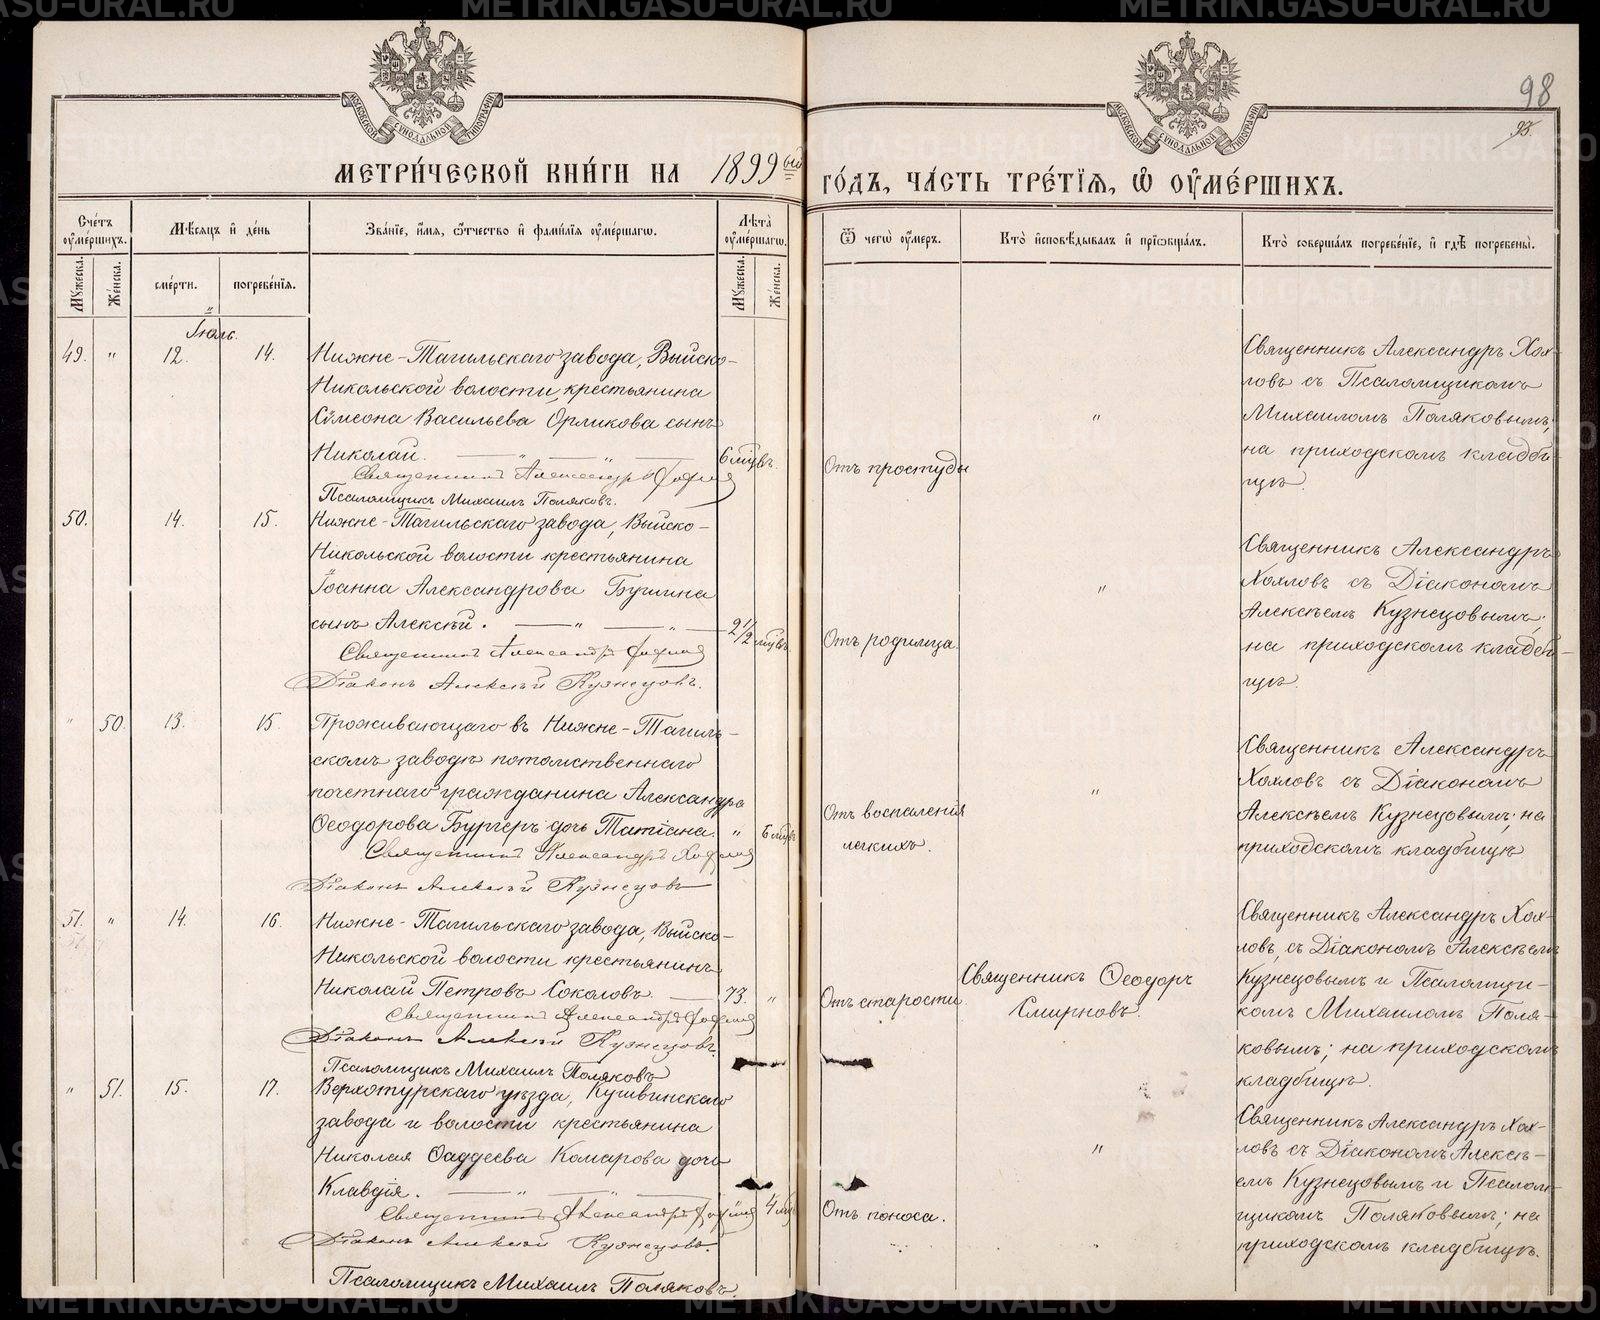 METRIKI.GASU-URAL.RU
МОСКОВСКОЙ СѴНОДАЛЬНОЙ ТИПОГРАФІИ
МОСКОВСКОЙ СѴНОДАЛЬНОЙ ТИПОГРАФІИ
98
93.
МЕТРИ́ЧЕСКОЙ КНИ́ГИ НА 1899ый ГО́ДЪ, ЧА́СТЬ ТРЕ́ТІѦ, Ѡ҆ ОУ҆МЕ́РШИХЪ.
Сче́тъ оу҆ме́ршихъ.
Мѣ́сяцъ и҆ де́нь
Зва́нїе, и҆́мя, ѻ҆́тчество и҆ фамилїя оу҆ме́ршагѡ.
Лѣ́та оу҆ме́ршагѡ.
Ѿ чегѡ̀ оу҆́меръ.
Кто̀ и҆сповѣ́дывалъ и҆ прїѡбща́лъ.
Кто̀ соверша́лъ погребе́нїе, и҆ гдѣ̀ погребены̀.
Мꙋ́жеска.
Же́нска.
сме́рти.
погребе́нїя.
Мꙋ́жеска.
Же́нска.
Іюль.
49. " 12. 14. Нижне-Тагильскаго завода, Выйско-
Никольской волости, крестьянина
Сѵмеона Васильева Орликова сынъ
Николай. 6 мцвъ.
Священникъ Александръ Хохловъ
Псаломщикъ Михаилъ Поляковъ.
Отъ простуды
"
Священникъ Александръ Хох-
ловъ съ Псаломщикомъ
Михаиломъ Поляковымъ;
на приходскомъ кладби-
щѣ.
50. 14. 15. Нижне-Тагильскаго завода, Выйско-
Никольской волости крестьянина
Іоанна Александрова Бушина
сынъ Алексѣй. 2 1/2 мцвъ
Священникъ Александръ Хохловъ
Діаконъ Алексѣй Кузнецовъ.
Отъ родимца.
"
Священникъ Александръ
Хохловъ съ Діакономъ
Алексѣемъ Кузнецовымъ;
на приходскомъ кладби-
щѣ.
" 50. 13. 15. Проживающаго въ Нижне-Тагиль-
скомъ заводѣ потомственнаго
почетнаго гражданина Александра
Ѳеодорова Бургеръ дочь Татіана. " 6 мцвъ
Священникъ Александръ Хохловъ
Діаконъ Алексѣй Кузнецовъ
Отъ воспаленія
легкихъ.
"
Священникъ Александръ
Хохловъ съ Діакономъ
Алексѣемъ Кузнецовымъ; на
приходскомъ кладбищѣ
51. " 14. 16. Нижне-Тагильскаго завода, Выйско-
Никольской волости крестьянинъ
Николай Петровъ Соколовъ. 73. "
Священникъ Александръ Хохловъ
Діаконъ Алексѣй Кузнецовъ.
Псаломщикъ Михаилъ Поляковъ
Отъ старости.
Священникъ Ѳеодоръ
Смирновъ.
Священникъ Александръ Хох-
ловъ, съ Діакономъ Алексѣемъ
Кузнецовымъ и Псаломщи-
комъ Михаиломъ Поля-
ковымъ; на приходскомъ
кладбищѣ.
" 51. 15. 17. Верхотурскаго уѣзда, Кушвинскаго
завода и волости крестьянина
Николая Ѳаддеева Комарова дочь
Клавдія. 4 мцв
Священникъ Александръ Хохловъ
Діаконъ Алексѣй Кузнецовъ.
Псаломщикъ Михаилъ Поляковъ.
Отъ поноса.
"
Священникъ Александръ Хох-
ловъ съ Діакономъ Алексѣ-
емъ Кузнецовымъ и Псалом-
щикомъ Поляковымъ; на
приходскомъ кладбищѣ.
METRIKI.GASU-URAL.RU